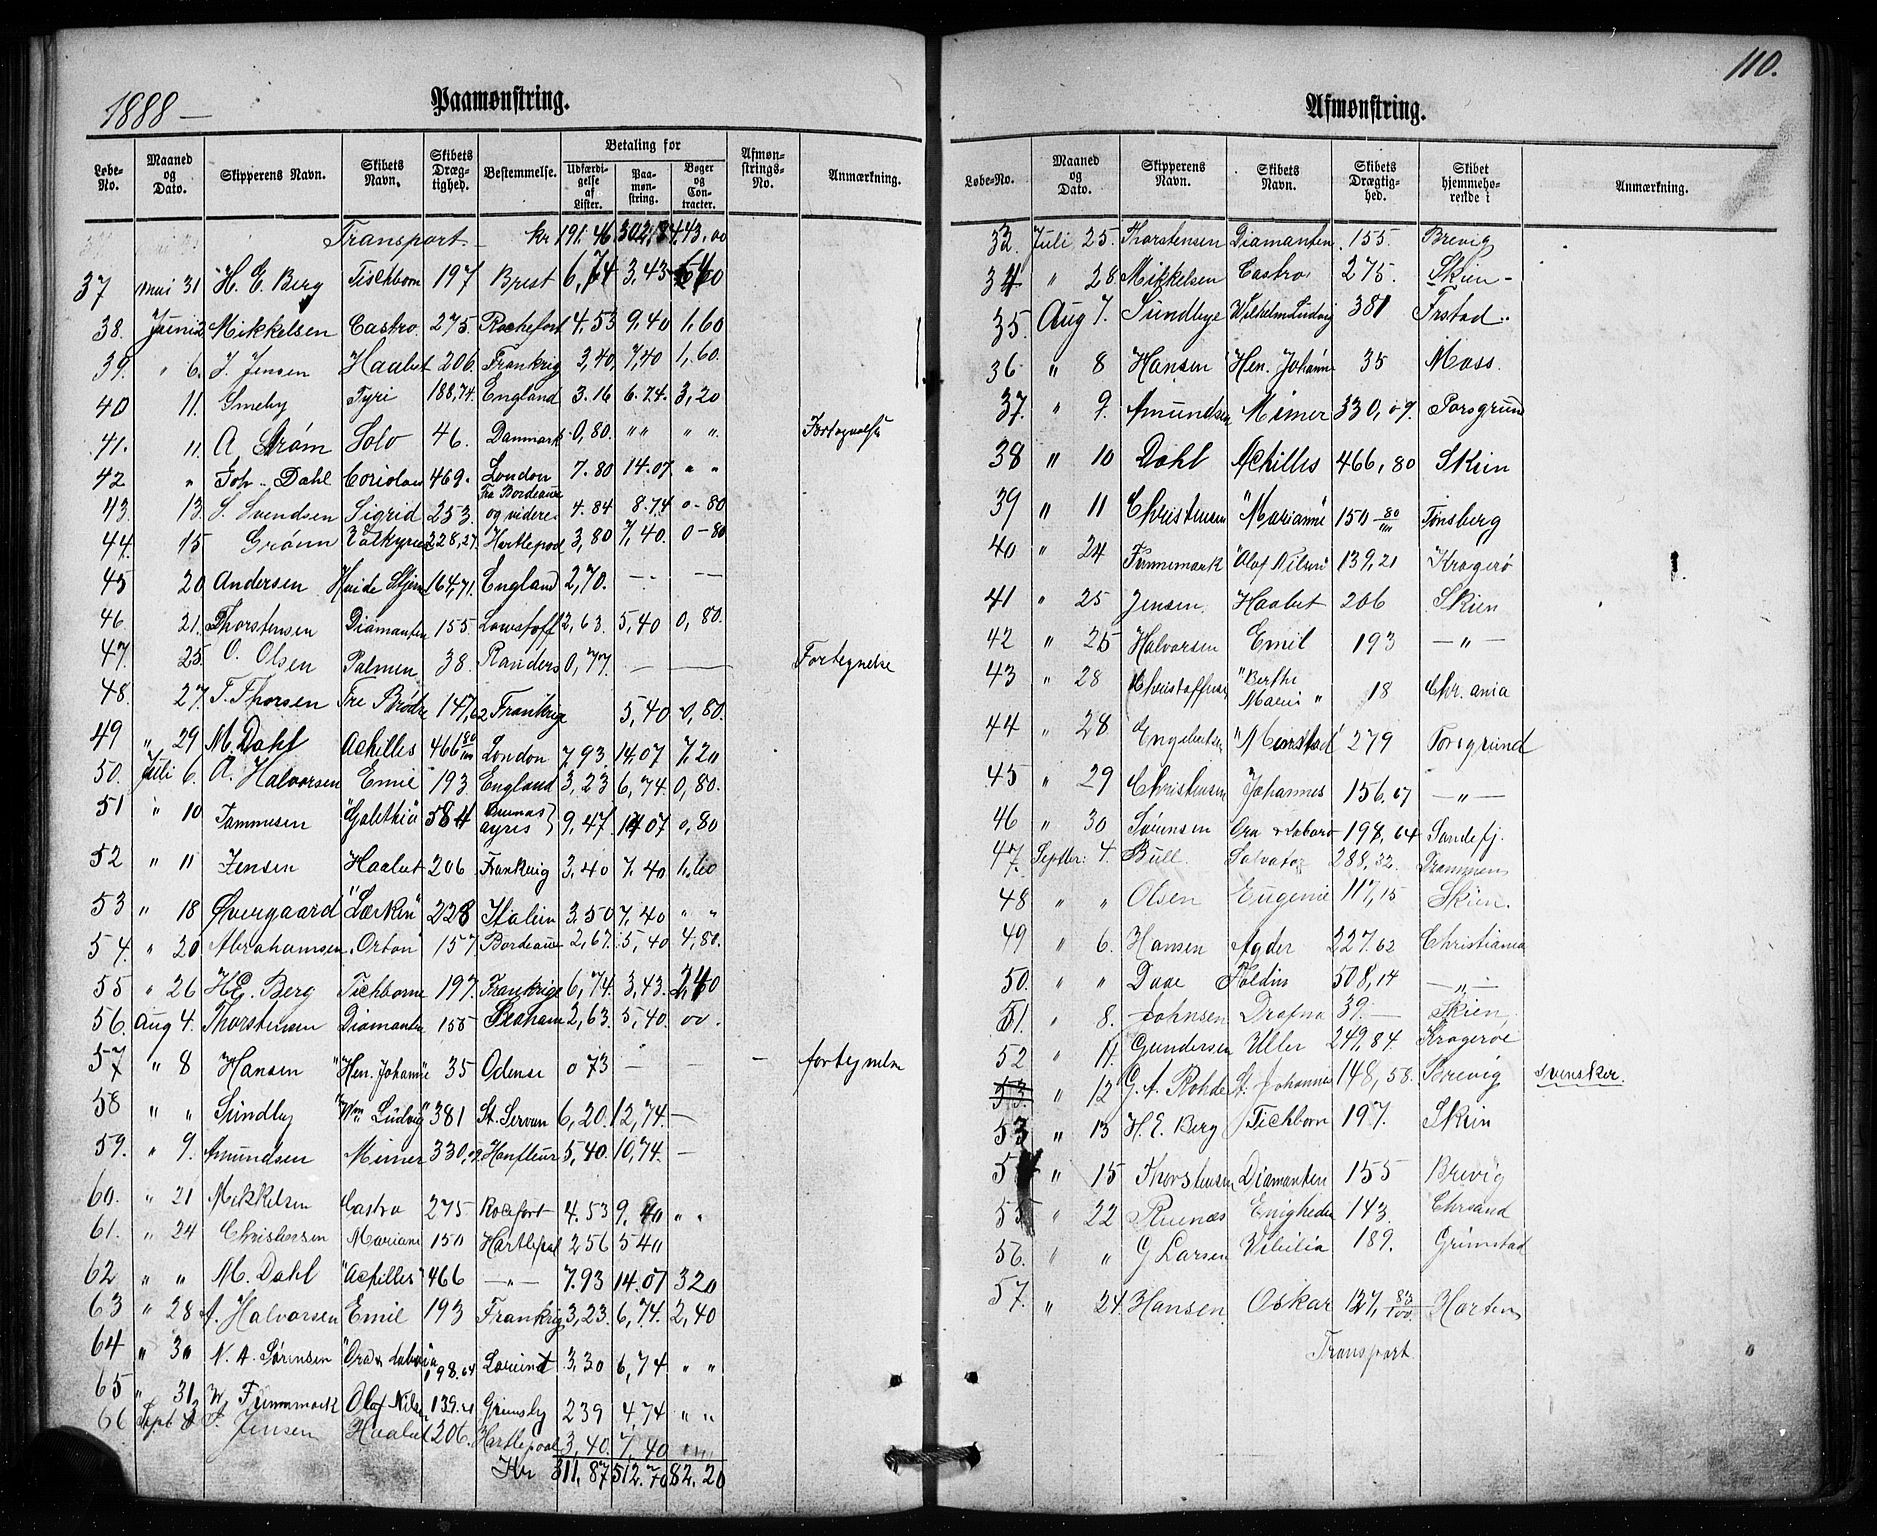 1888 –
Paamønstring.
Løbe-No. | Maaned og Dato. | Skipperens Navn. | Skibets Navn. | Skibets Dræg-tighed. | Bestemmelse. | Betaling for | Udfærdi-gelse af Lister. | Paa-møn-string. | Bøger og Con-tracter. | Afmøn-strings-No. | Anmærkning.
Transport – kr 191.46
37 Mai 31 H. E. Berg Tischborn 197 Brest 6,74 3,43
38. Juni 2 Mikkelsen Castro 275. Rochefort 4.53 9.40 1,60
39. " 6. J. Jensen Haabet 206. Frankrig 3,40 7,40 1,60.
40 11. Smeby Tyri 188,74. England 3.16 6.74. 3,20
41. 11. A Strøm Solo 46. Danmark 0,80. " " " " Fortegnelse
42 " Joh. Dahl Coriolan 469. London 7.80 14.07 " "
43. 13. S. Svendsen Sigrid 253. Fra Bordeaux og videre. 4.84 8.74 0-80
44. 15 Grønn Valkyrien 228,27. Hartlepool 3,80 7,40. 0-80
45 20 Andersen Hvide Stjerne 164,71. England 2,70. — —
46. 21. Thorstensen Diamanten 155. Lowstoff 2,63. 5,40 0,80.
47. 25. O. Olsen Palmen 38. Randers 0,77. — — Fortegnelse
48. 27. T. Thorsen Tre Brødre 147,62 Frankrige 5,40 0,80.
49 " 29 M. Dahl Achilles 466 80/100 London 7,93. 14,07 7,20
50. Juli 6. A. Halvorsen Emil 193. England 3,23 6,74. 0,80.
51 " 10 Tammesen "Galathia" 584 Buenos ayris 9,47 14 07 0,80
52 " 11 Jensen Haabet 206 Frankrig 3,40 7,40 1,60
53 " 18 Øvergaard "Lærken" 228 Italien 3.50 7,40 " "
54. " 20 Abrahamsen "Orton" 157 Bordeaux 2,67. 5,40 4,80.
55 " 26 H.E. Berg Tichborne 197. Frankrige 6,74. 3,43. 2,40
56. Aug 4. Thorstensen Diamanten 155 Seaham 2,63. 5,40. 00.
57 " 8 Hansen "Hen. Johanne" 35 Odense 0 73 — — – fortegnelse
58 " " Sundby "Wm Ludvig" 381 St. Servan 6,20. 12,74. —
59. " 9. Amundsen Mimer 330,09. Honfleur 5,40. 10,74. —
60. " 21 Mikkelsen Castro 275 Rocefort 4.53 9.40 " "
61. " 24 Christensen Mariane 150 Hartlepol 2 56 5 40
62 " " M. Dahl "Achilles" 466 —"— 7.93 14.07 3 20
63 " 28 A. Halvorsen Emil 193 Frankrig 3,23. 6,74. 2,40
64 " 30 N. A. Sørensen "Ora & Labora" 198.64 Lorient 3,30 6,74 " "
65 " 31 W. Finnmark Olaf Nilsen 139.21 Grimsby 2 39 4,74 " "
66 Sept 3 J. Jensen Haabet 206. Hartlepool 3,40. 7,40 " "
Kr 311,87 512.70 82.20
110.
Afmønstring.
Løbe-No. | Maaned og Dato. | Skipperens Navn. | Skibets Navn. | Skibets Drægtig-hed. | Skibet hjemmehø-rende i | Anmærkning.
33. Juli 25. Thorstensen Diamanten 155. Brevig
34 " 28 Mikkelsen Castro 275. Skien –
35 Aug 7. Sundbye Wilhelm Ludvig 381 Frstad.
36 " 8 Hansen Hen. Johanne 35 Moss.
37. " 9. Amundsen Mimer 330,09. Porsgrund
38 " 10 Dahl Achilles 466,80 Skien
39 " 11 Christensen "Marianne" 150 80/100 Tønsberg
40 " 24 Finnemark "Olaf Nilsen" 139,21 Kragerø
41 " 25 Jensen. Haabet 206 Skien
42 " 25 Halvorsen Emil 193 —"—
43 " 28 Christoffersen "Berthe Marie" 18 Chr.ania
44 " 28 Engebretsen "Menstad" 279 Porsgrund
45 " 29 Christensen Johannes 156.67 —"—
46 " 30 Sørensen Ora & Labora 198,64 Sandefj.
47. Septbr: 4. Bull. Salvator 288,32. Drammen
48 " " Olsen Eugenie 117,15 Skien.
49 " 6. Hansen Agder 227.62 Christiania
50. " " Daae Foldin 508,14 —"—
51. " 8. Johnsen Drafna 39. — Skien
52 " 11. Gundersen Uller 249,84. Kragerøe
53 " 12 G. A. Rohde St. Johannes 148,58. Brevig svensker.
53 " 13 H. E. Berg Tichborn 197. Skien
54 " 15 Thorstensen Diamanten 155 Brevig
55 " 22 Ruenæs Enigheden 143. Chrsand
56. " " G Larsen Vibilia 189. Grimstad
57. " 24. Hansen. Oskar 127, 83/100. Horten
Transport